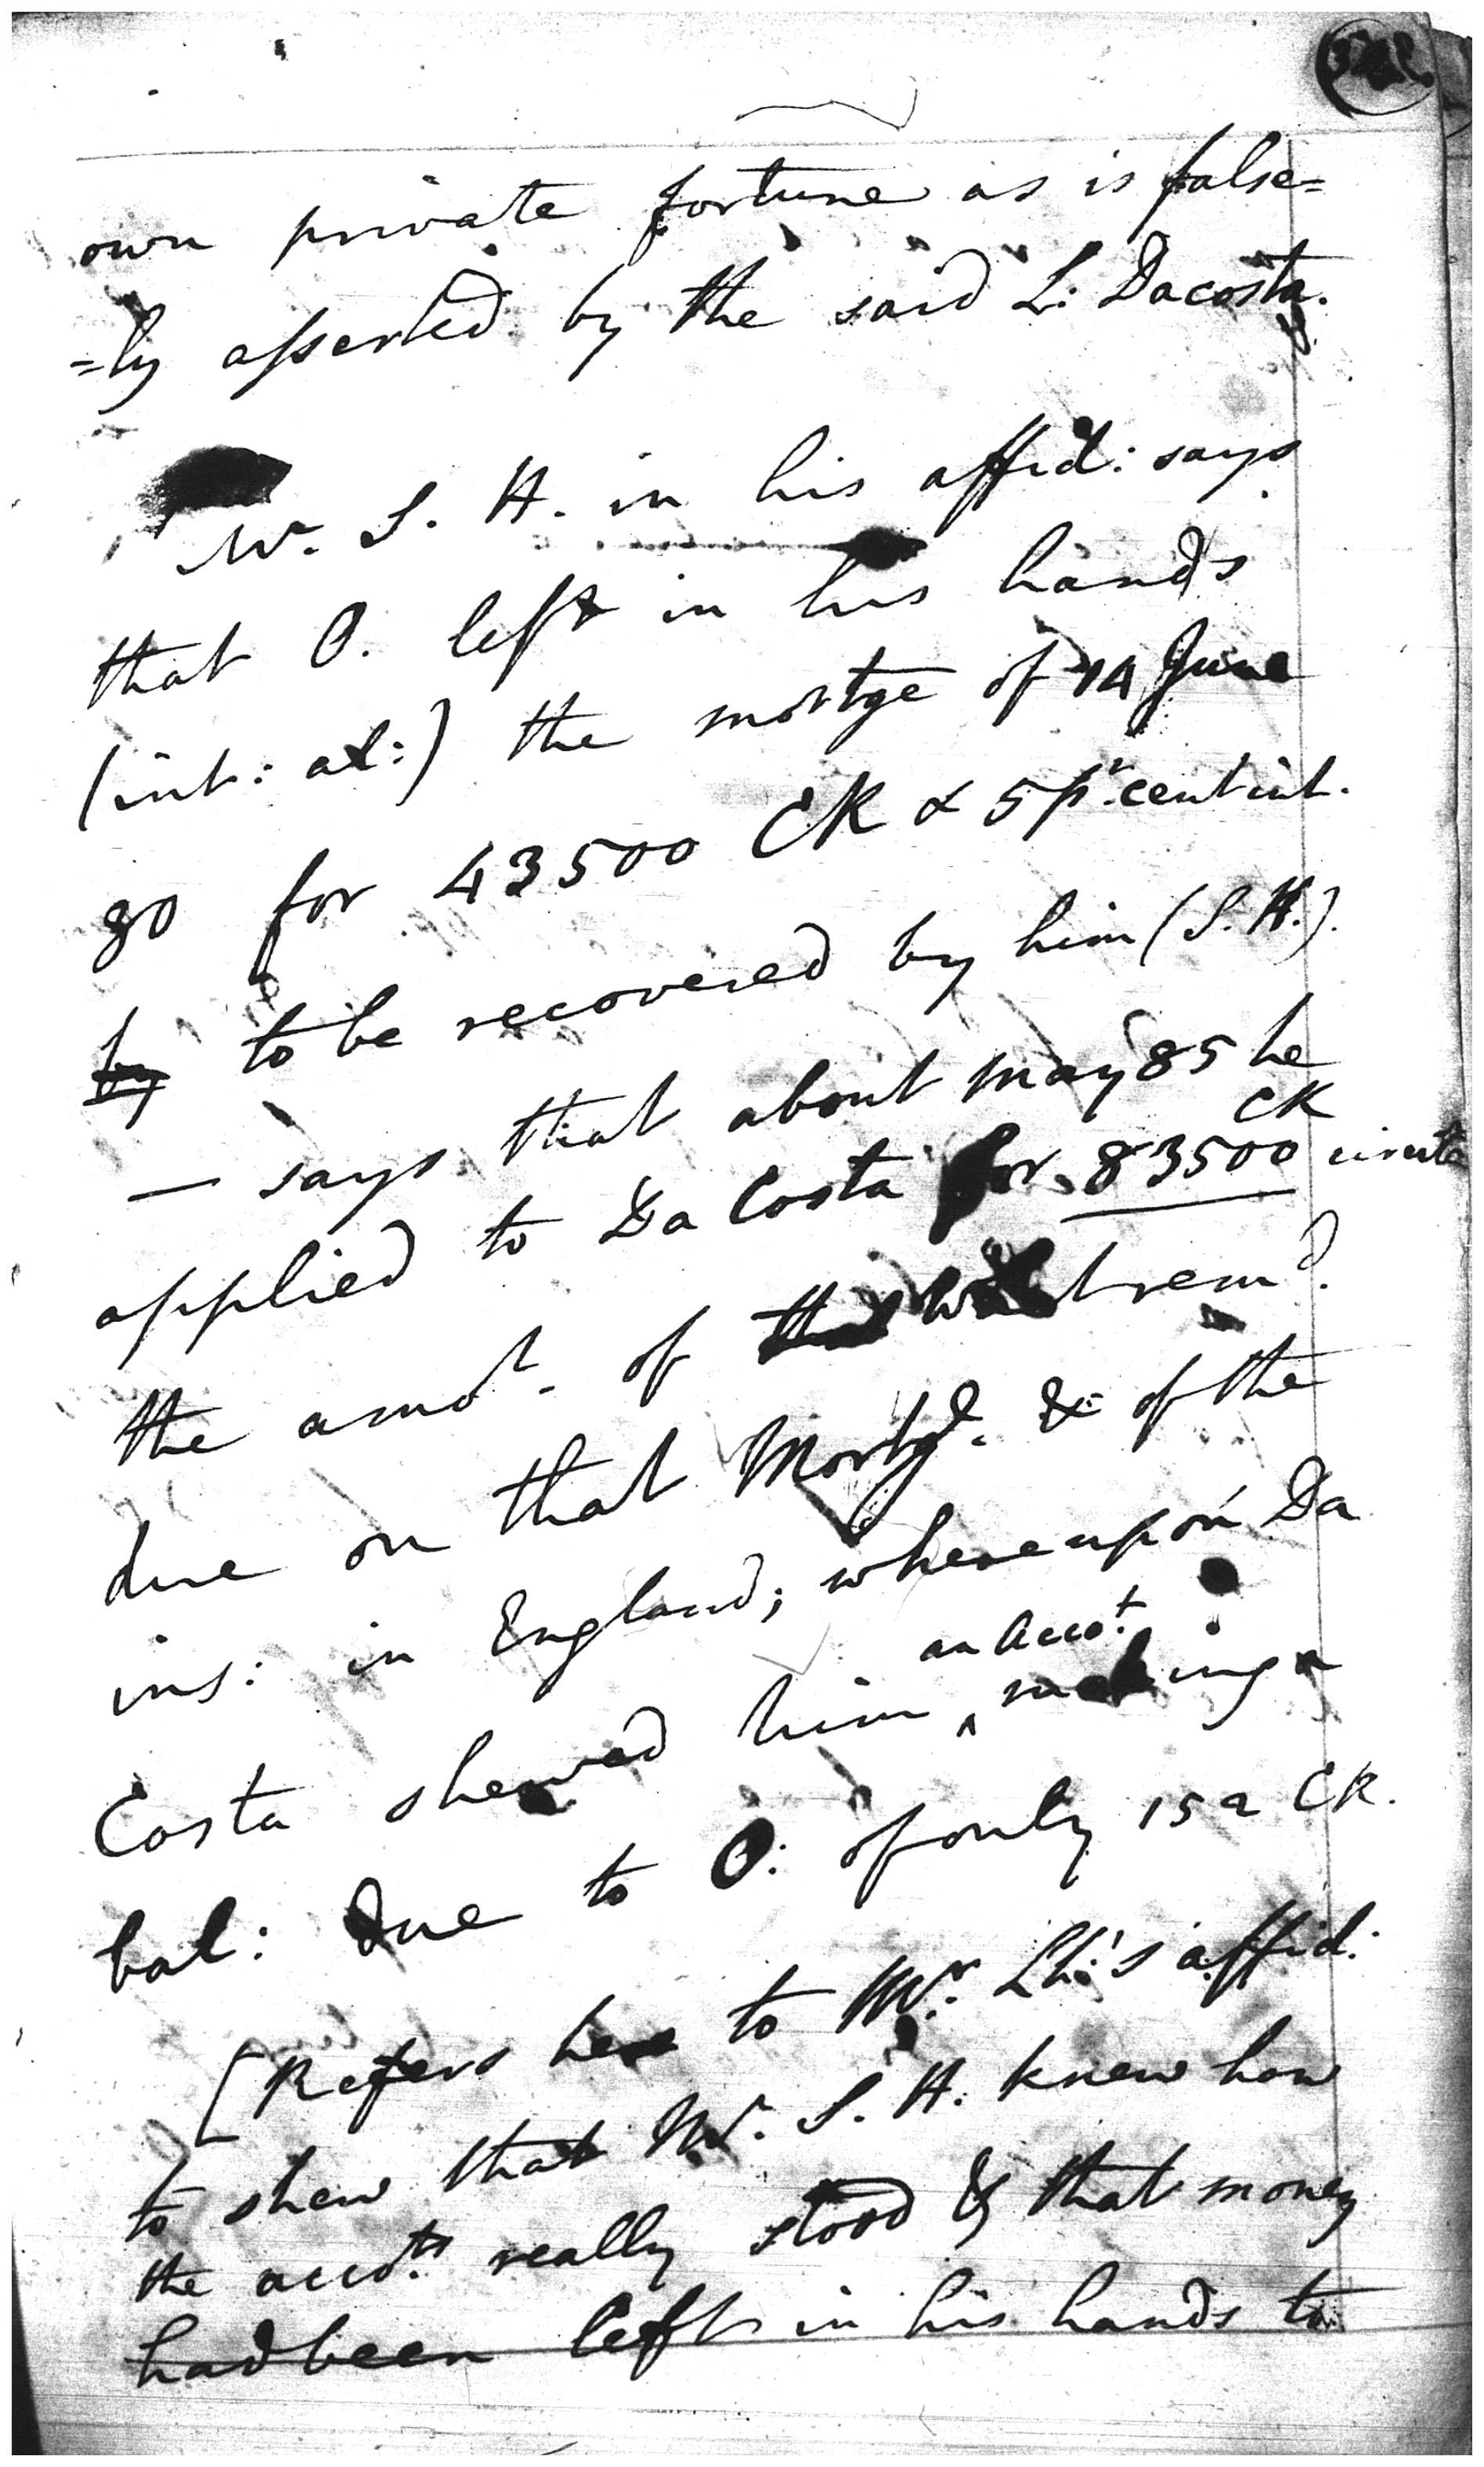 own private fortune as is false=
=ly asserted by the said L: Dacosta.
Mr. S. H. in his affid: says
that O. left in his hands
(int: al:) the mortge of 14 June
80 for 43500 CR & 5 pr. cent int.
by to be recovered by him (S. H.).
— says that about may 85 he
applied to Da Costa for 83500 CR
the amot. of what remd.
due on that Mortge. & of the
ins: in England; whereupon Da
Costa shewed him an Accot. making a
bal: due to O: of only 152 CR.
[Refers here to Mr. Lh:'s affid:
to shew that Mr. S. H. knew how
the accots. really stood & that money
had been left in his hands to